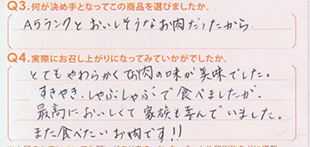 Q3.何が決め手となってこの商品を選びましたか。
A5ランクとおいしそうなお肉だったから
Q4.実際にお召し上がりになってみていかがでしたか。
とてもやわらかくてお肉の味が美味でした。
すきやき、しゃぶしゃぶで食べましたが、
最高においしくて家族も喜んでいました。
また食べたいお肉です!!